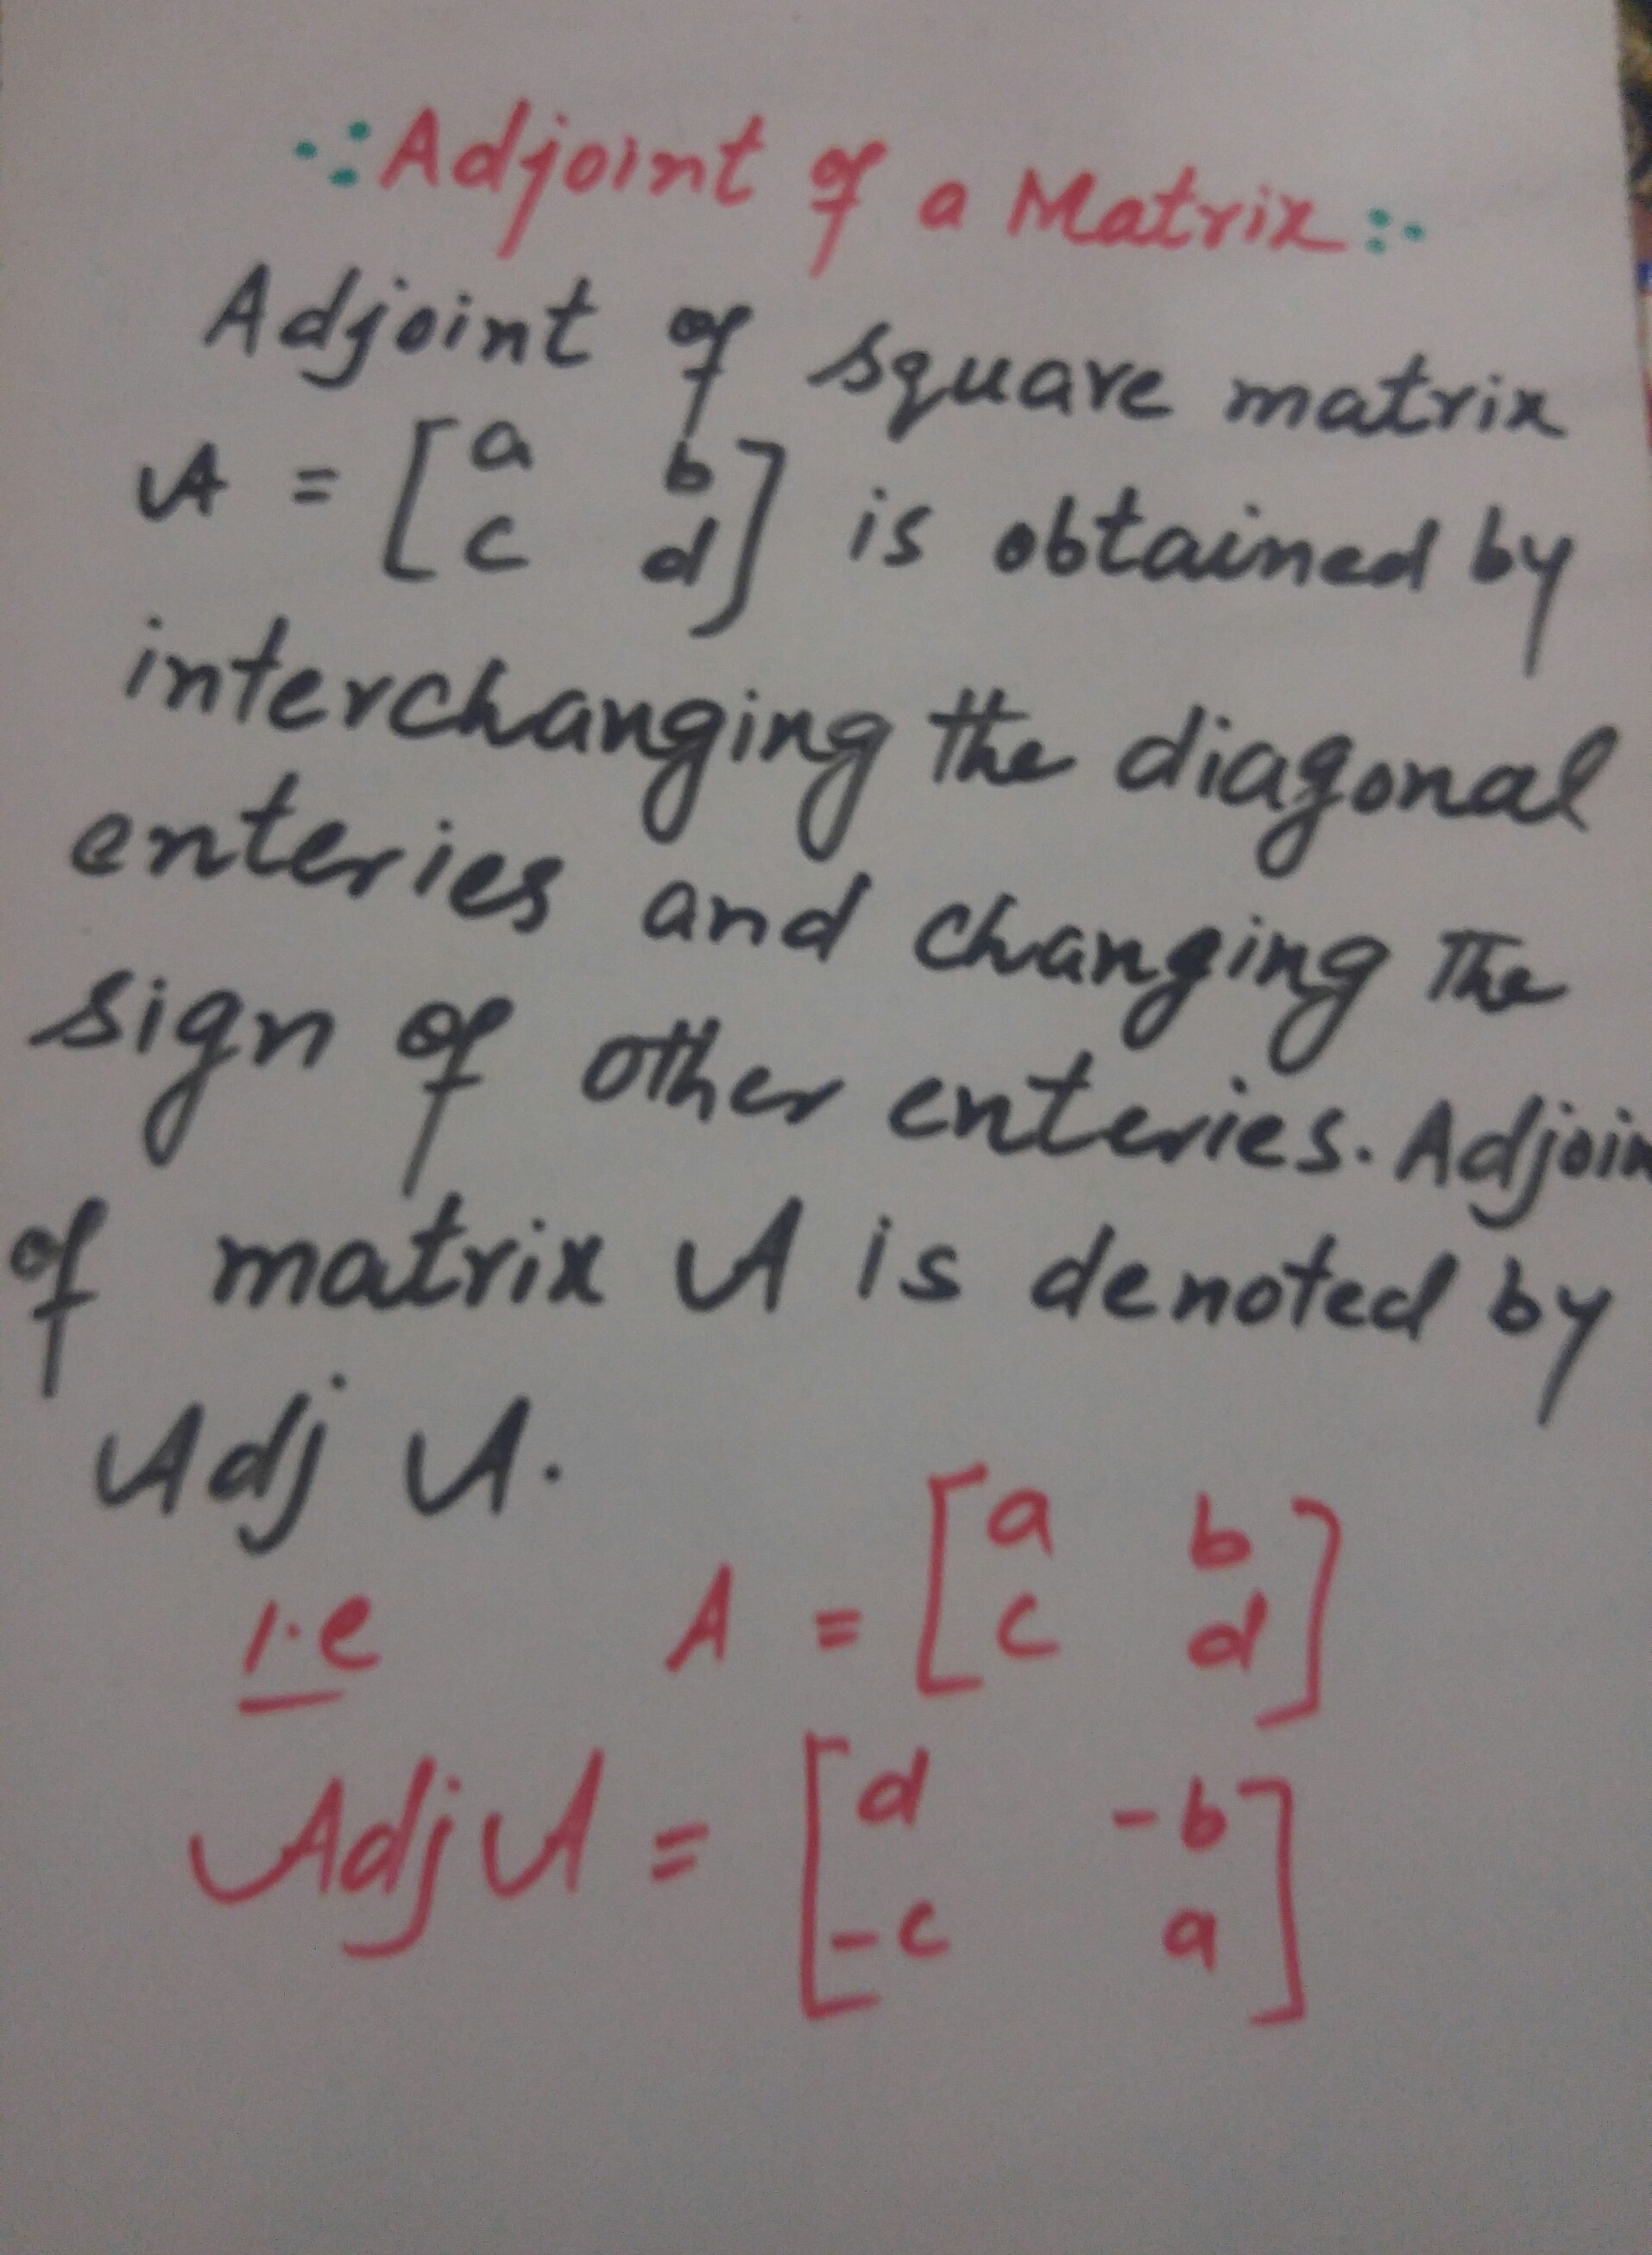 ∴Adjoint of a Matrix:·
Adjoint of square matrix
A = [a b
c d] is obtained by
interchanging the diagonal
enteries and changing the
sign of other enteries. Adjoin
of matrix A is denoted by
Adj A.
i.e A = [a b
c d]
Adj A = [d -b
-c a]